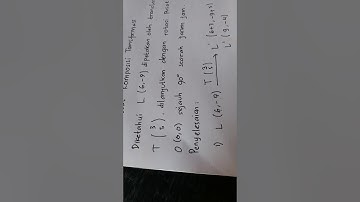 Komposisi Transformasi
Diketahui L (6,-9) dipetakan oleh
T (3 5). dilanjutkan dengan rotasi Pusat
O (0,0) sejauh 90° searah jarum jam.
Penyelesaian:
1) L (6,-9) T (3 5) → L' (6+3, -9+5)
L' (9,-4)